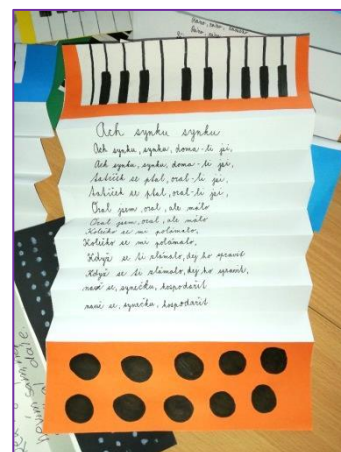 Ach synku synku
Ach synku, synku, doma-li jsi,
Ach synku, synku, doma-li jsi,
tatíček se ptal, oral-li jsi,
tatíček se ptal, oral-li jsi,
Oral jsem, oral, ale málo
Oral jsem, oral, ale málo
Kolečko se mi polámalo,
Kolečko se mi polámalo,
Když se ti zlámalo, dej ho spravit
Když se ti zlámalo, dej ho spravit,
nauč se, synečku, hospodařit
nauč se, synečku, hospodařit